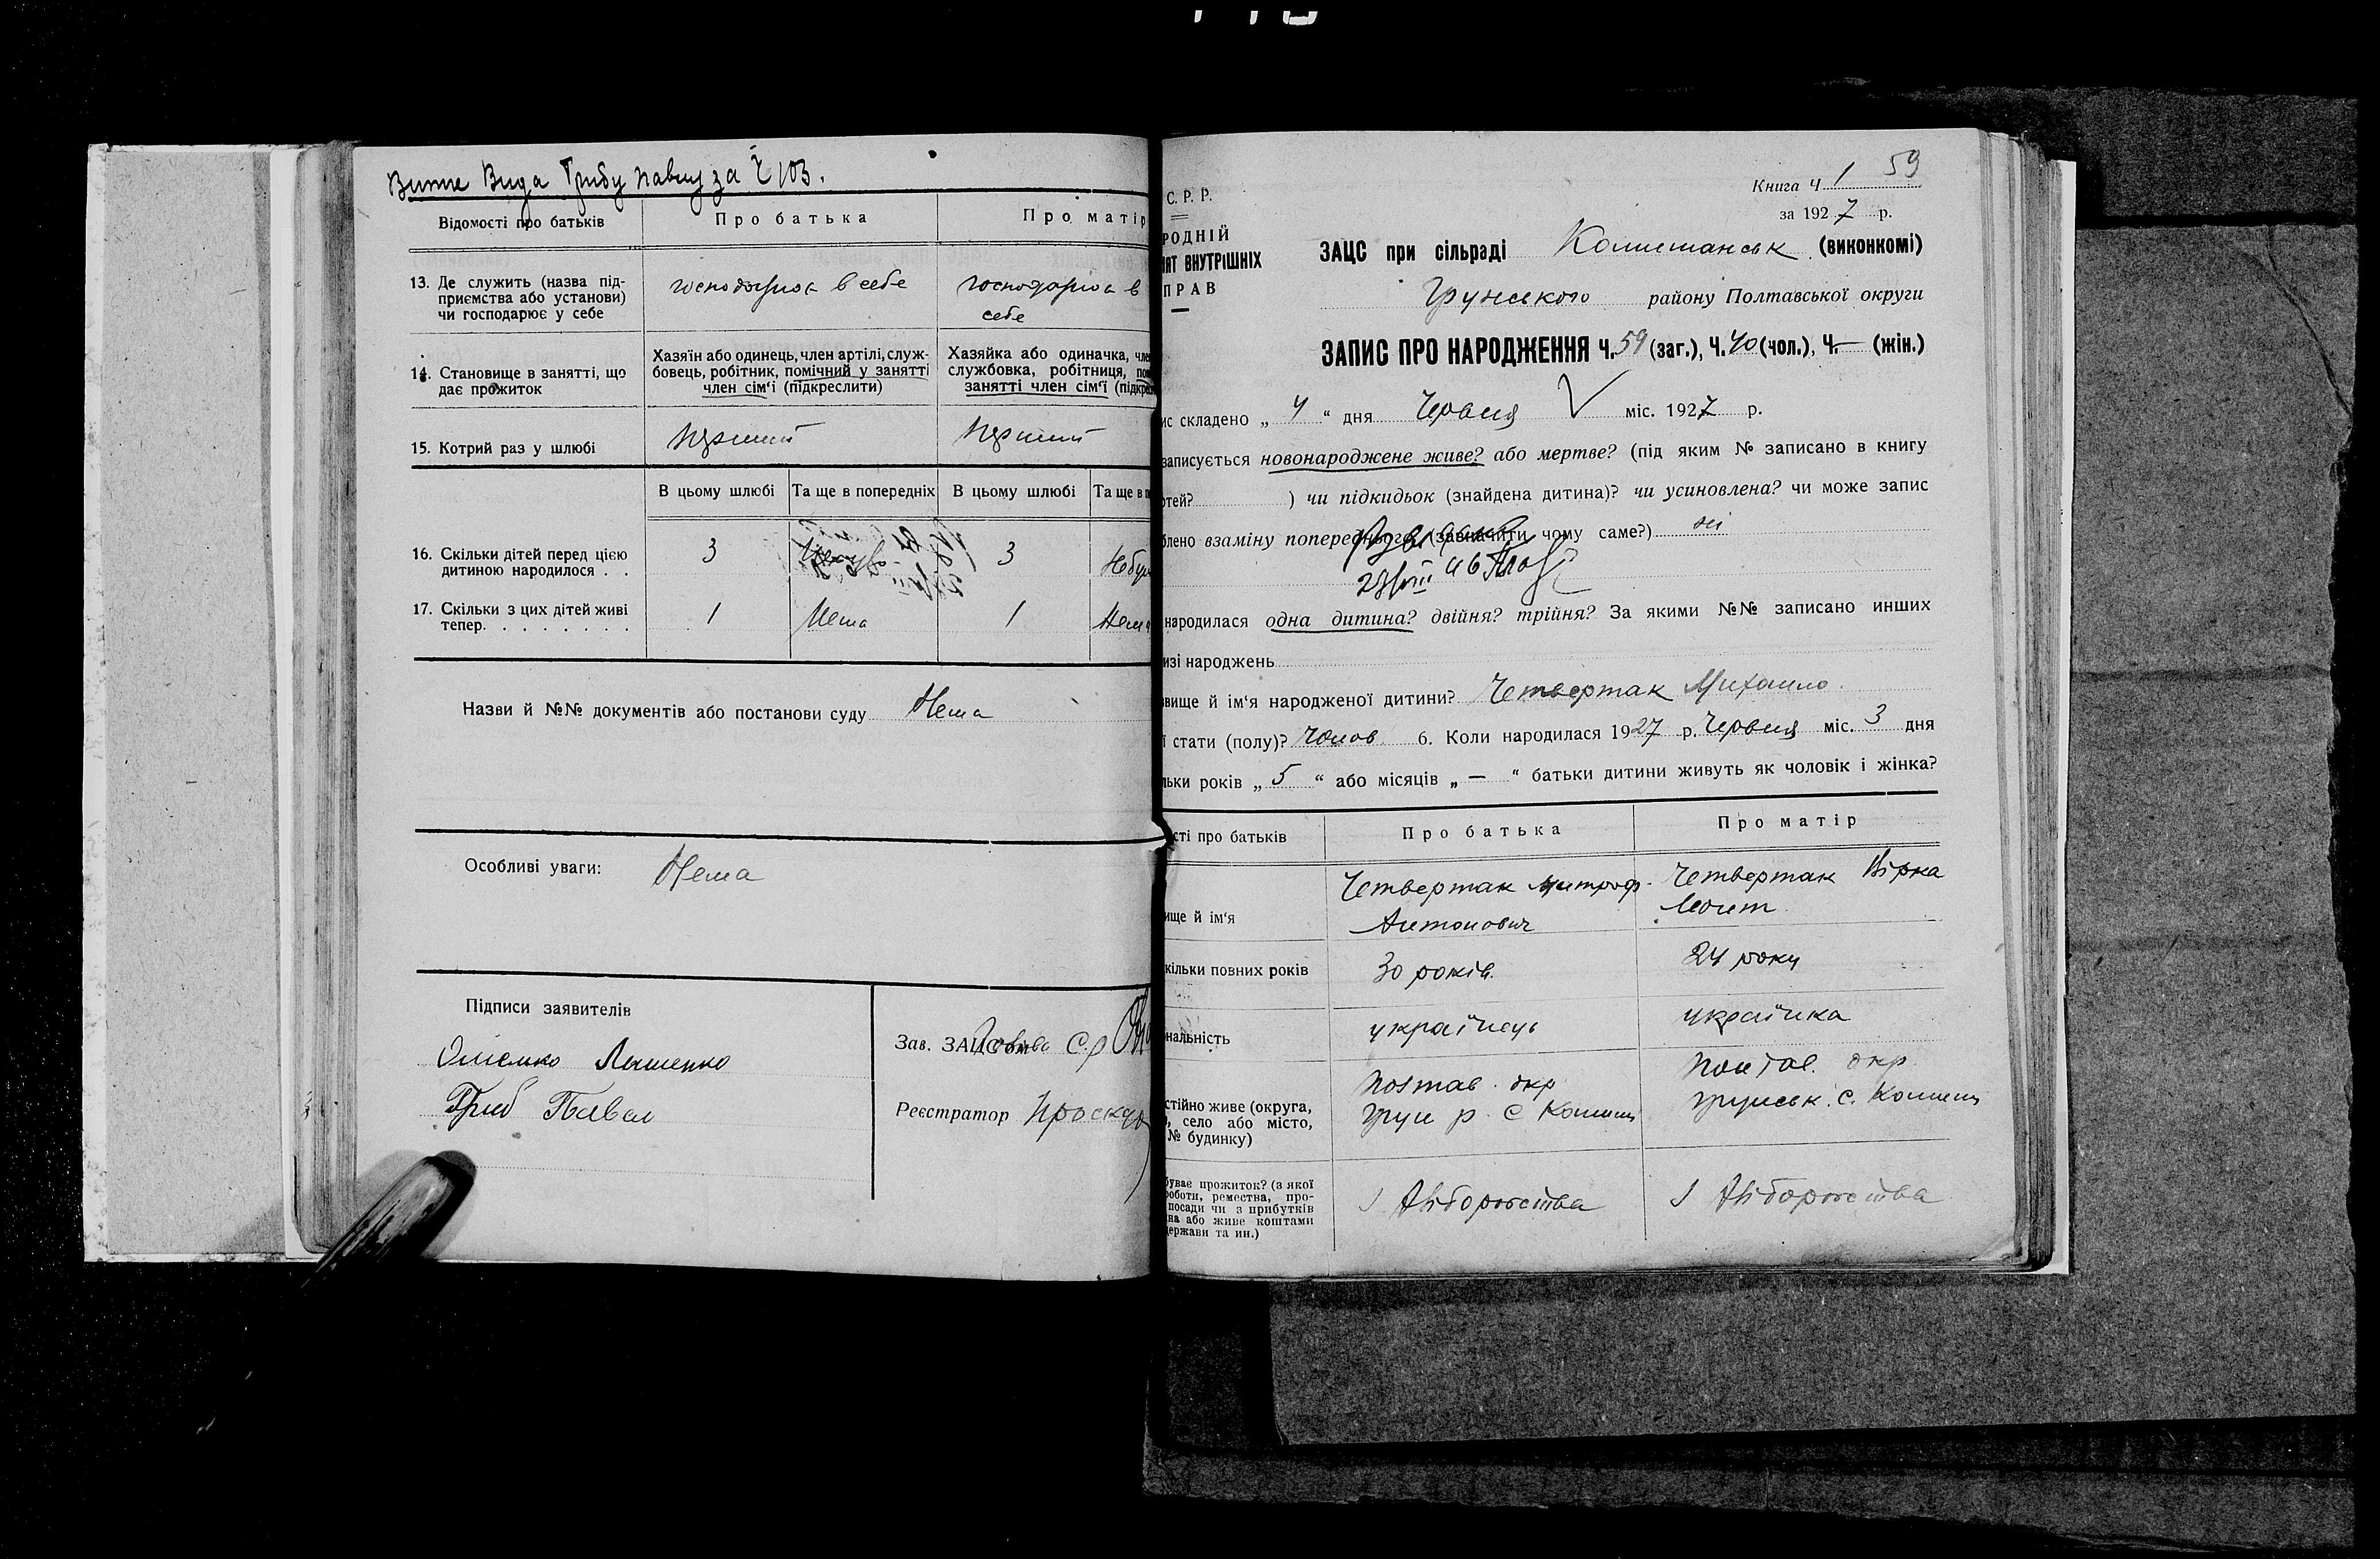 Витяг Вида Грибу Павлу за Ч 103.
Відомості про батьків
Про батька
Про матір
13. Де служить (назва під-
приємства або установи)
чи господарює у себе
господарює в себе
господарює в
себе
14. Становище в занятті, що
дає прожиток
Хазяїн або одинець, член артілі, служ-
бовець, робітник, помічний у занятті
член сім'ї (підкреслити)
Хазяйка або одиначка, чле
службовка, робітниця, пом
занятті член сім'ї (підкре
15. Котрий раз у шлюбі
перший
перший
В цьому шлюбі
Та ще в попередніх
В цьому шлюбі
Та ще в п
16. Скільки дітей перед цією
дитиною народилося . .
3
3
17. Скільки з цих дітей живі
тепер. . . . . . . .
1
Нема
1
Нема
Назви й №№ документів або постанови суду Нема
Особливі уваги: Нема
Підписи заявителів
Гриб Павел
Зав. ЗАЦС'ом
Реєстратор
59
Книга Ч 1
за 1927 р.
С. Р. Р.
РОДНІЙ
ІЯТ ВНУТРІШНІХ
ПРАВ
ЗАЦС при сільраді Комишанськ (виконкомі)
Грунського району Полтавської округи
ЗАПИС ПРО НАРОДЖЕННЯ Ч. 59 (заг.), Ч. 40 (чол.), Ч. — (жін.)
ис складено „ 4 “ дня Червця V міс. 1927 р.
записується новонароджене живе? або мертве? (під яким № записано в книгу
ртей? ) чи підкидьок (знайдена дитина)? чи усиновлена? чи може запис
блено взаміну попереднього (зазначити чому саме?) ні
народилася одна дитина? двійня? трійня? За якими №№ записано инших
изі народжень
звище й ім'я народженої дитини? Четвертак Михайло
ї стати (полу)? чолов. 6. Коли народилася 1927 р. Червця міс. 3 дня
льки років „ 5 “ або місяців „ — “ батьки дитини живуть як чоловік і жінка?
сті про батьків
Про батька
Про матір
ище й ім'я
Четвертак Митроф.
Антонович
Четвертак Вірка
кільки повних років
30 років.
24 роки
нальність
українець
українка
стійно живе (округа,
, село або місто,
№ будинку)
Полтав. окр
Грун р. С Комиш
Полтав. окр.
Грунськ. с. Комиш
буває прожиток? (з якої
роботи, ремества, про-
посади чи з прибутків
на або живе коштами
держави та ин.)
З Хліборобства
З Хліборобства